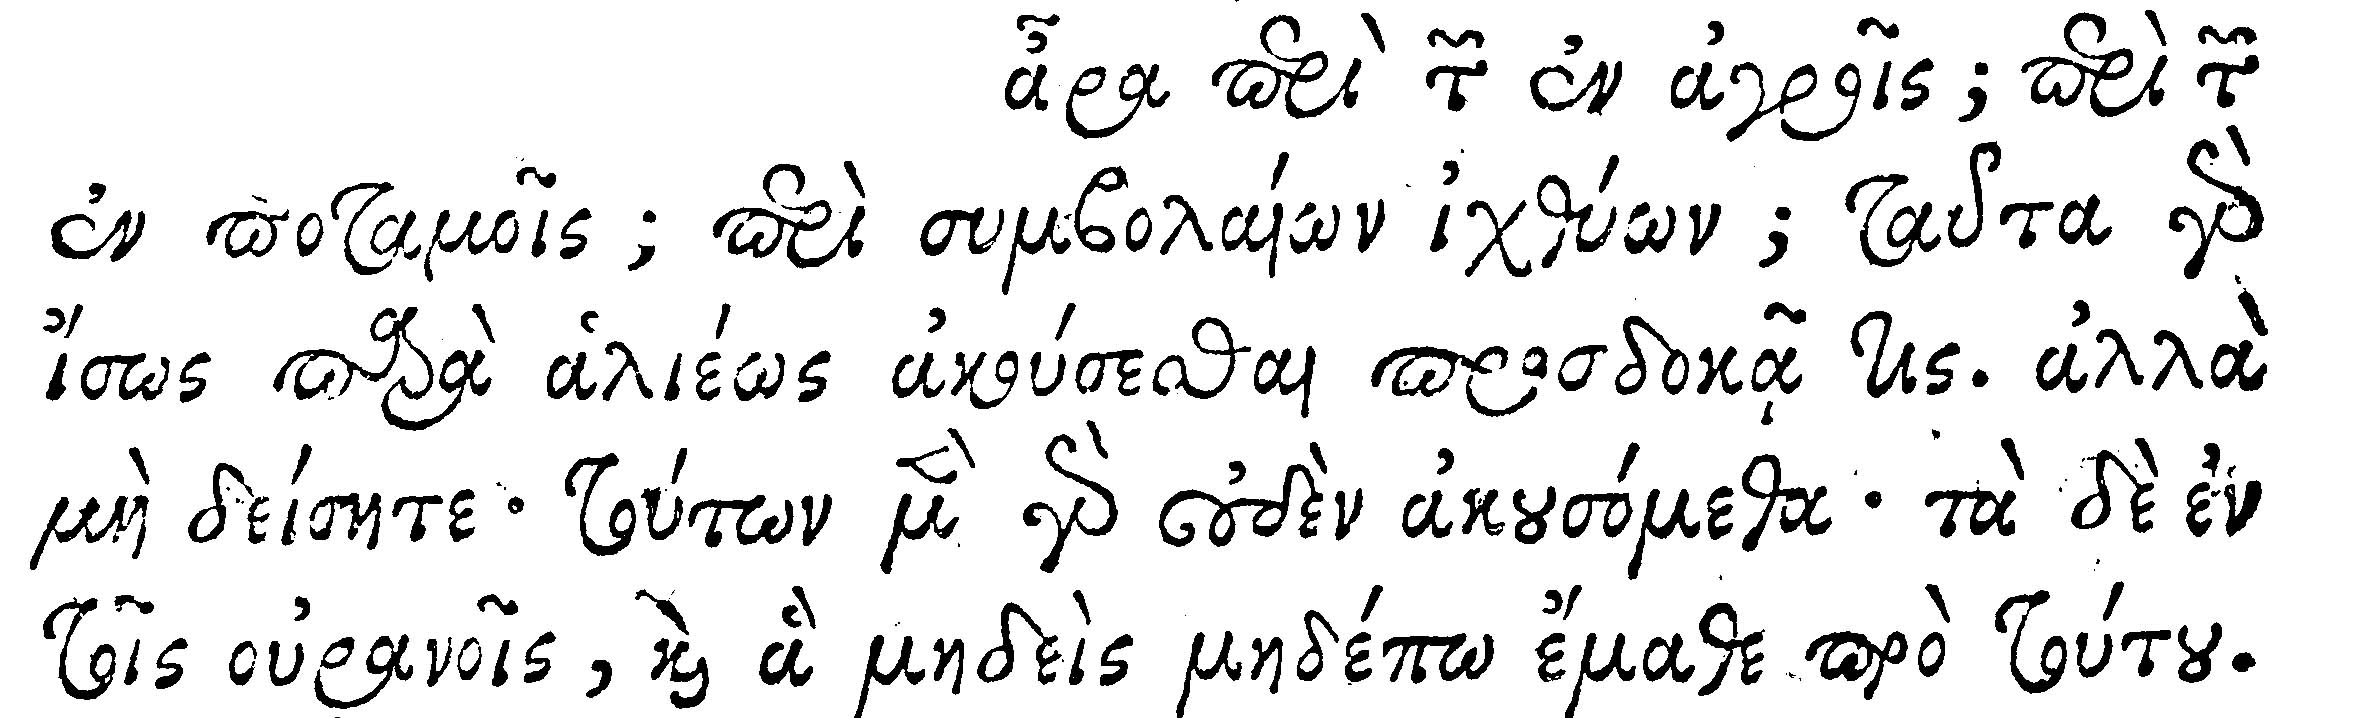 ἆρα περὶ τῶν ἐν ἀγροῖς; περὶ τῶν
ἐν ποταμοῖς; περὶ συμβολαίων ἰχθύων; ταῦτα γὰρ
ἴσως παρὰ ἁλιέως ἀκούσεσθαι προσδοκᾷ τις. ἀλλὰ
μὴ δείσητε· τούτων μὲν γὰρ οὐδὲν ἀκουσόμεθα· τὰ δὲ ἐν
τοῖς οὐρανοῖς, καὶ ἃ μηδεὶς μηδέπω ἔμαθε πρὸ τούτου.